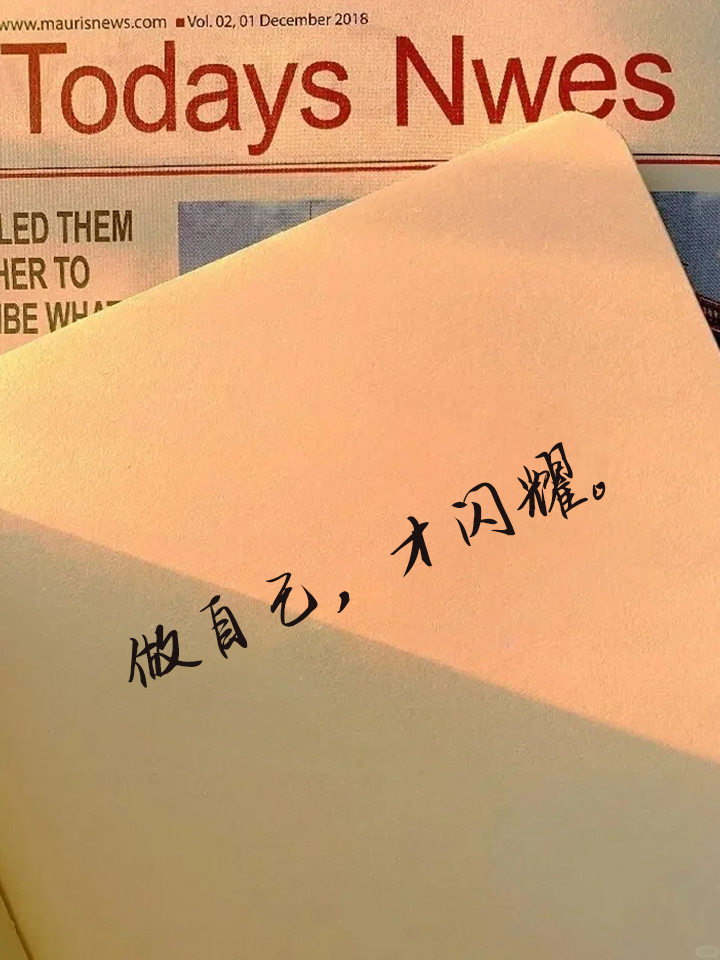 www.maurisnews.com ■ Vol. 02, 01 December 2018
Todays Nwes
LED THEM
HER TO
IBE WHAT
做自己，才闪耀。